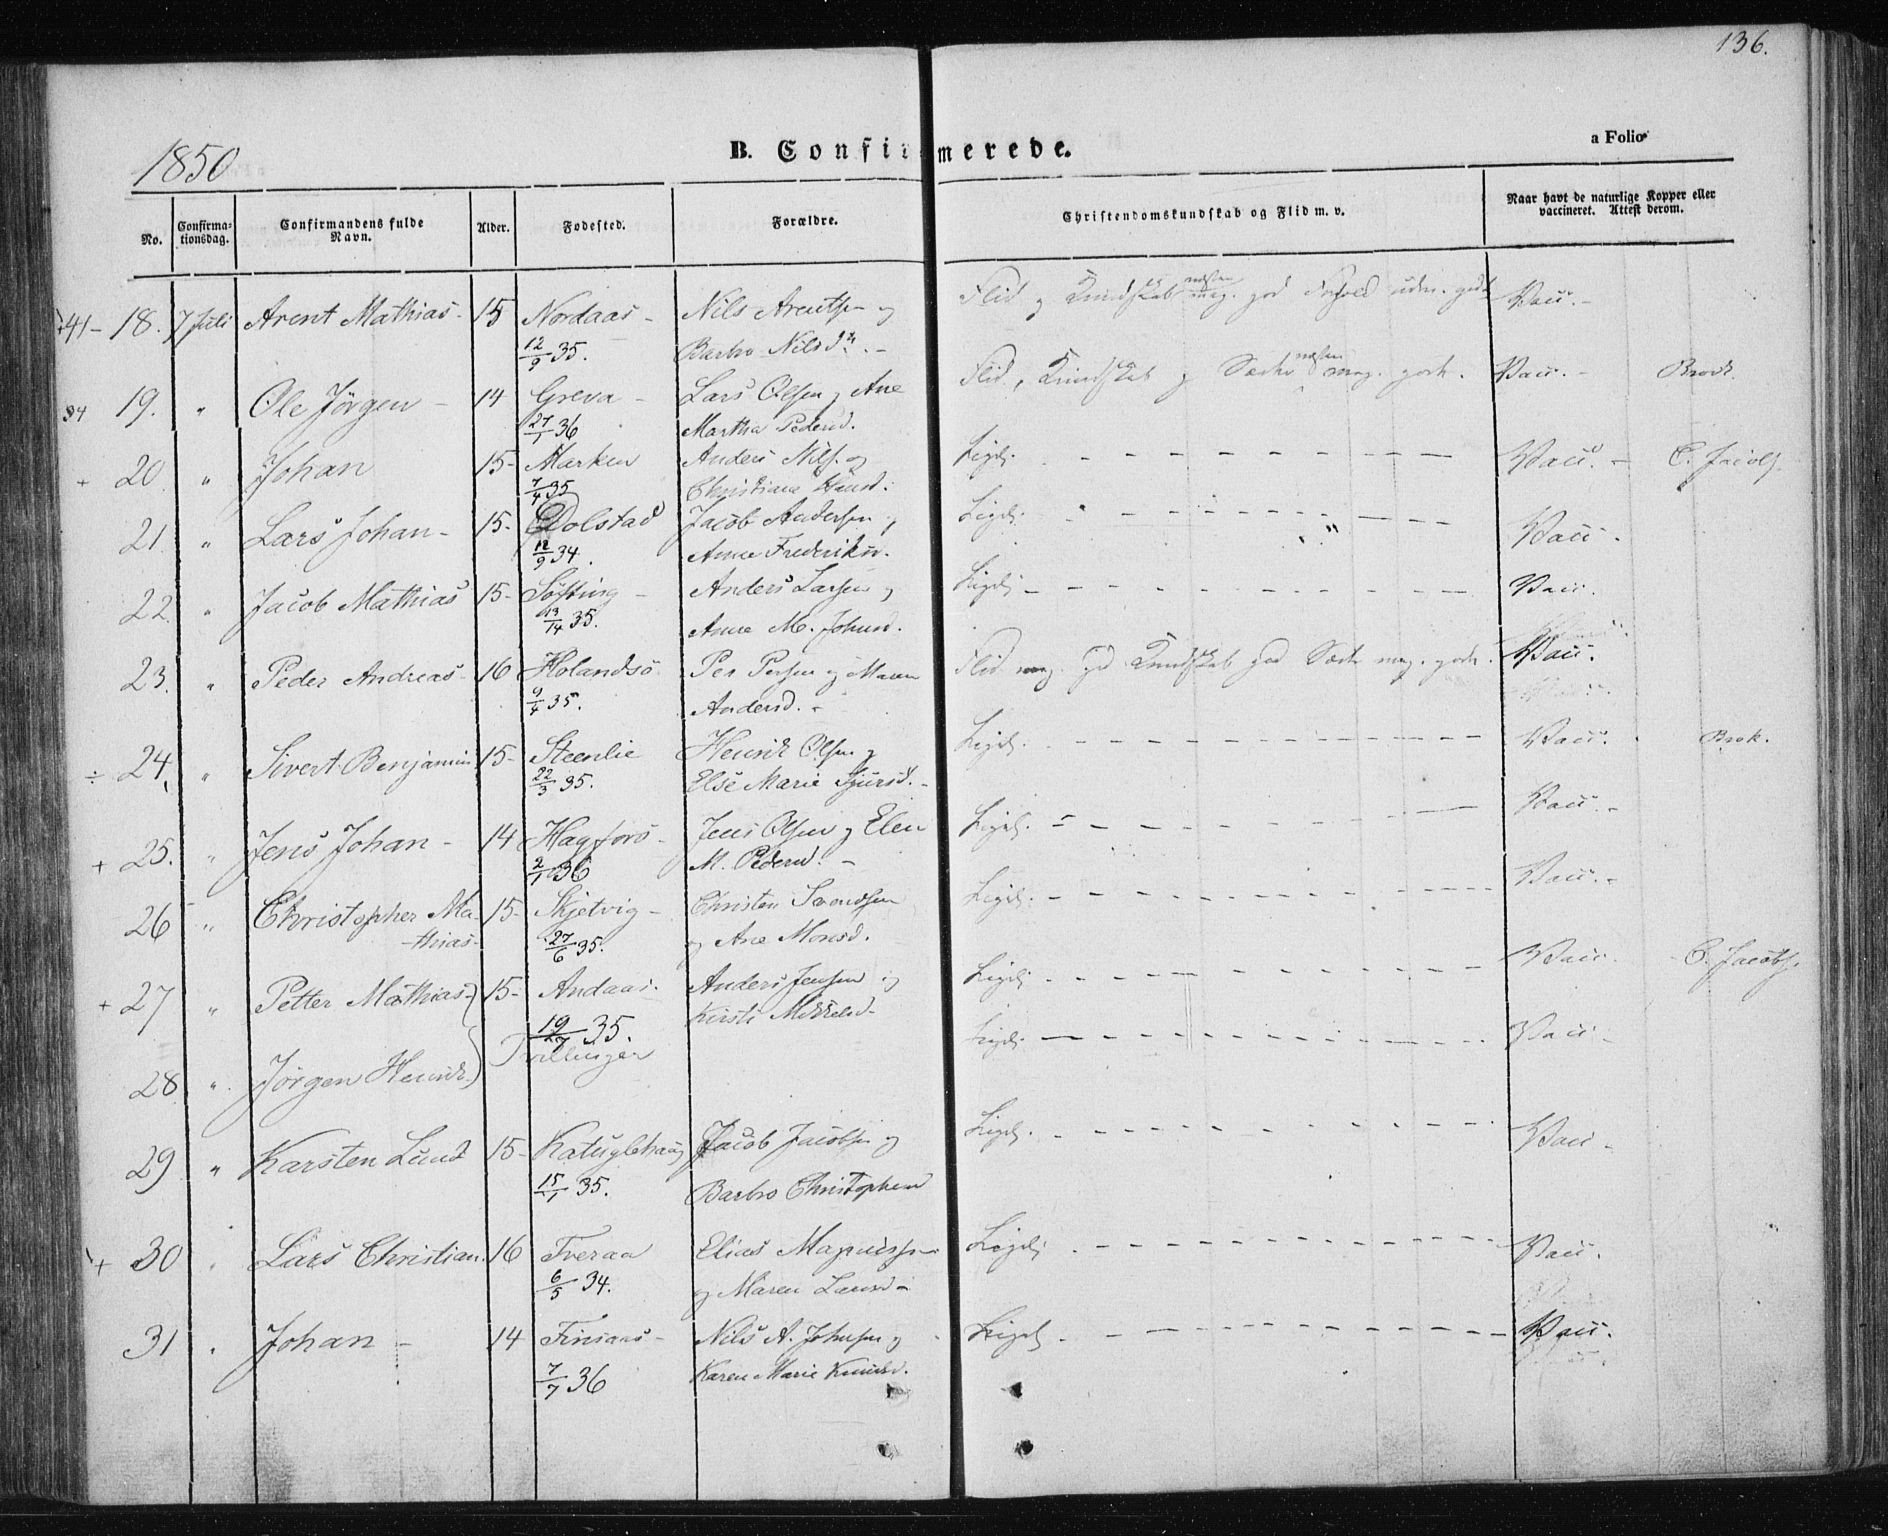 136.
1850
B. Confirmerede.
a Folio
No.
Confirma-
tionsdag.
Confirmandens fulde
Navn.
Alder.
Fodested.
Forældre.
Christendomskundskab og Flid m. v.
Naar havt de naturlige Kopper eller
vaccineret. Attest derom.
41 - 18. 7 Juli Arent Mathias - 15 Nordaas - Nils Arentsen og Flid og Kundskab næsten meg. god Forhold udm. godt Vacc. -
12/9 35. Barbro Nilsd. -
34 19. " Ole Jörgen - 14 Greva - Lars Olsen og Ane Flid, Kundskab og Sæder næsten meg. gode. Vacc. - Brock.
27/1 36 Martha Pedersd.
+ 20 " Johan 15 - Marken Anders Nils. og Ligel. Vacc. - C. Jacobs.
7/4 35 Christiana Hansd.
21. " Lars Johan - 15 - Dolstad Jacob Andersen og Ligel. Vacc.
12/9 34. Anne Frederiksd.
22 " Jacob Mathias 15 - Söfting - Anders Larsen og Ligel. Vacc.
13/14 35. Anne M. Johnsd.
23. " Peder Andreas - 16 Holandsö Per Persen og Maren Flid meg. god Kundskab god Sæder meg. gode. Vacc.
9/4 35. Andersd. -
÷ 24. " Sivert Benjamin 15 - Steenlie Henrik Olsen og Ligel. Vacc. Brok.
22/3 35. Else Marie Sjursd. -
+ 25. " Jens Johan - 14 Hagfors - Jens Olsen og Elen Ligel. Vacc. -
2/1 36 M. Pedersd. -
26 " Christopher Ma- 15 - Skjetvig - Christen Svendsen Ligel. Vacc. -
thias. 27/6 35. og Ane Monsd.
+ 27 " Petter Mathias 15 - Andaas. Anders Jensen og Ligel. Vacc. C. Jacobs.
19/7 35. Kirsti Mikkelsd.
28 " Jörgen Henrik Tvillinger Ligel. Vacc. -
29 " Karsten Lund 15 - Katuglehaug Jacob Jacobsen og Ligel. Vacc -
15/1 35. Barbro Christophersd
+ 30 " Lars Christian. 16 Tveraa Elias Magnussen Ligel. Vacc.
6/5 34. og Maren Larsd -
31 " Johan - 14 Finsaas - Nils A. Johnsen og Ligel. Vacc.
7/7 36 Karen Marie Knudsd.